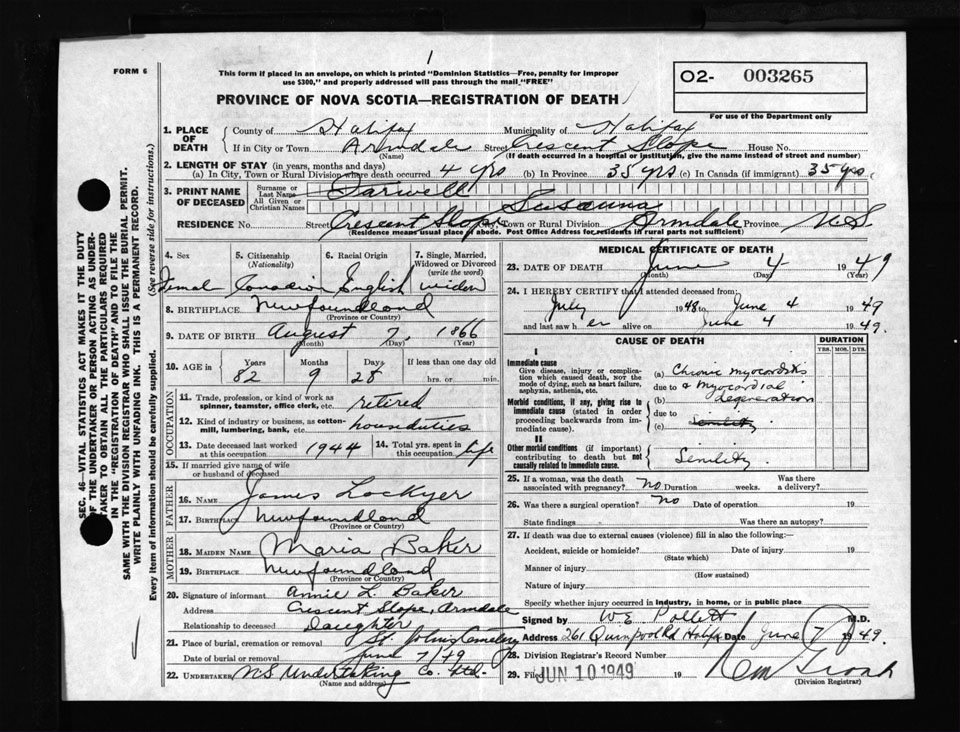 1
FORM 6
This form if placed in an envelope, on which is printed "Dominion Statistics—Free, penalty for improper
use $300," and properly addressed will pass through the mail "FREE"
O2- 003265
For use of the Department only
PROVINCE OF NOVA SCOTIA—REGISTRATION OF DEATH
1. PLACE OF DEATH County of Halifax Municipality of Halifax
If in City or Town Armdale (Name) Street Crescent Slope House No.
(If death occurred in a hospital or institution, give the name instead of street and number)
2. LENGTH OF STAY (in years, months and days)
(a) In City, Town or Rural Division where death occurred 4 yrs (b) In Province 35 yrs (c) In Canada (if immigrant) 35 yrs
3. PRINT NAME OF DECEASED Surname or Last Name Farwell
All Given or Christian Names Susanna
RESIDENCE No. Street Crescent Slope City, Town or Rural Division Armdale Province N.S.
(Residence means usual place of abode. Post Office Address for residents in rural parts not sufficient)
4. Sex 5. Citizenship (Nationality) 6. Racial Origin 7. Single, Married, Widowed or Divorced (write the word)
Femal Canadian English widow
8. BIRTHPLACE Newfoundland
(Province or Country)
9. DATE OF BIRTH August 7, 1866
(Month) (Day) (Year)
10. AGE in Years Months Days If less than one day old
82 9 28 hrs. or min.
OCCUPATION
11. Trade, profession, or kind of work as spinner, teamster, office clerk, etc. retired
12. Kind of industry or business, as cotton-mill, lumbering, bank, etc. housduties
13. Date deceased last worked at this occupation 1944 14. Total yrs. spent in this occupation life
15. If married give name of wife or husband of deceased
FATHER
16. NAME James Lockyer
17. BIRTHPLACE Newfoundland
(Province or Country)
MOTHER
18. MAIDEN NAME Maria Baker
19. BIRTHPLACE Newfoundland
(Province or Country)
20. Signature of informant Annie L. Baker
Address Crescent Slope, Armdale
Relationship to deceased Daughter
21. Place of burial, cremation or removal St. Johns Cemetery
Date of burial or removal June 7/49
22. UNDERTAKER N.S Undertaking Co. Ltd.
(Name and address)
MEDICAL CERTIFICATE OF DEATH
23. DATE OF DEATH June 4 1949
(Month) (Day) (Year)
24. I HEREBY CERTIFY that I attended deceased from:
July 1948 to June 4 1949
and last saw her alive on June 4 1949.
CAUSE OF DEATH DURATION
YRS. MOS. DYS.
I
Immediate cause
Give disease, injury or complication which caused death, not the mode of dying, such as heart failure, asphyxia, asthenia, etc.
(a) Chronic myocarditis
due to & myocardial
Morbid conditions, if any, giving rise to immediate cause (stated in order proceeding backwards from immediate cause).
(b) degeneration
due to
(c) Senility
II
Other morbid conditions (if important) contributing to death but not causally related to immediate cause.
Senility.
25. If a woman, was the death associated with pregnancy? no Duration weeks. Was there a delivery?
26. Was there a surgical operation? no Date of operation 19
State findings Was there an autopsy?
27. If death was due to external causes (violence) fill in also the following:
Accident, suicide or homicide? Date of injury 19
(State which)
Manner of injury
(How sustained)
Nature of injury
Specify whether injury occurred in industry, in home, or in public place
Signed by W E Pollett M.D.
Address 261 Quinpool Rd Halifax Date June 7 1949.
28. Division Registrar's Record Number
29. Filed JUN 10 1949 19
(Division Registrar)
SEC. 46—VITAL STATISTICS ACT MAKES IT THE DUTY
OF THE UNDERTAKER OR PERSON ACTING AS UNDER-
TAKER TO OBTAIN ALL THE PARTICULARS REQUIRED
IN THE "REGISTRATION OF DEATH" AND TO FILE THE
SAME WITH THE DIVISION REGISTRAR WHO SHALL ISSUE THE BURIAL PERMIT.
WRITE PLAINLY WITH UNFADING INK. THIS IS A PERMANENT RECORD.
Every item of information should be carefully supplied. (See reverse side for instructions.)